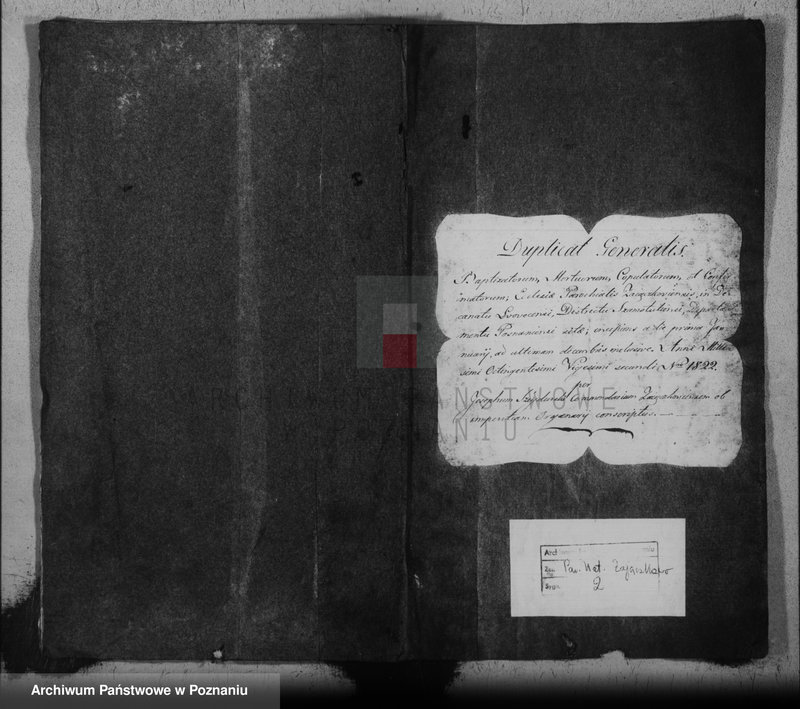 Duplicat Generalis.
Baptizatorum, Mortuorum, Copulatorum, et Confir
matorum; Eclesiæ Parochialis Zaiączkoviensis, in De
canatu Lvovecensi, Districtu Szamotulensi, Departa
mentu Posnaniensi sitæ; incipiens a 1a prima Ja
nuarij, ad ultimam decembris inclusive. Anni Mille
simi Octingentesimi Vigesimi secundi, Nro 1822.
per
Josephum Commendarium Zaiączkoviensem ob
imperitiam Organarij conscriptus.
Arch
Zesp. Par. Kat. Zajączkowo
Sygn. 2
Archiwum Państwowe w Poznaniu